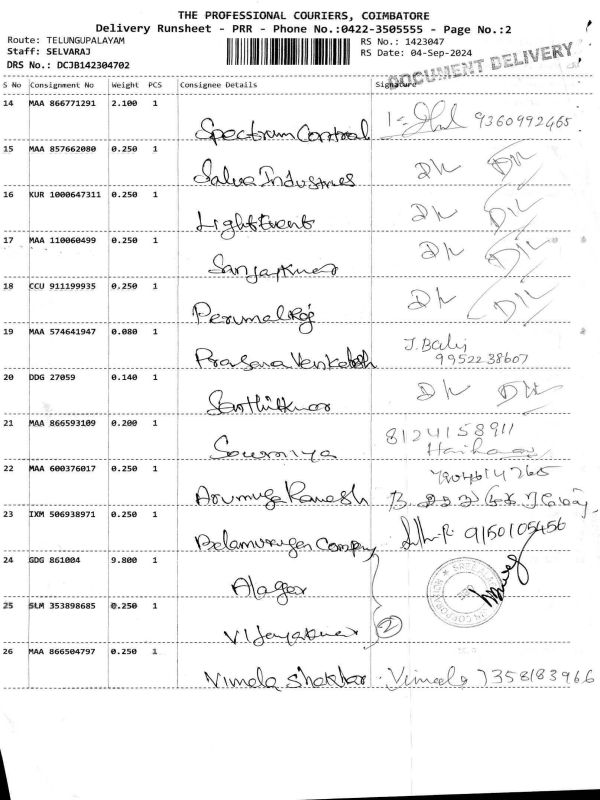 THE PROFESSIONAL COURIERS, COIMBATORE
Delivery Runsheet - PRR - Phone No.:0422-3505555 - Page No.:2
Route: TELUNGUPALAYAM RS No.: 1423047
Staff: SELVARAJ RS Date: 04-Sep-2024
DRS No.: DCJB142304702
DOCUMENT DELIVERY
S No Consignment No Weight PCS Consignee Details Signature
14 MAA 866771291 2.100 1
Spectrum Control 9360992465
15 MAA 857662080 0.250 1
Salva Industries DK DIL
16 KUR 1000647311 0.250 1
Light Event DK DIL
17 MAA 110060499 0.250 1
Sanjaykumar DK DIL
18 CCU 911199935 0.250 1
Perumal Raj DK DIL
19 MAA 574641947 0.080 1
Prasana Venkatesh J. Balaji
9952238607
20 DDG 27059 0.140 1
Senthilkumar DK DIL
21 MAA 866593109 0.200 1
8124158911
Sowmiya
22 MAA 600376017 0.250 1
Arumuga Ramesh
23 IXM 506938971 0.250 1
Balamurugan Company 9150105456
24 GDG 861004 9.800 1
Alagar
25 SLM 353898685 0.250 1
Vijayakumar 2
26 MAA 866504797 0.250 1
Vimala Shekhar Vimala 7358183966